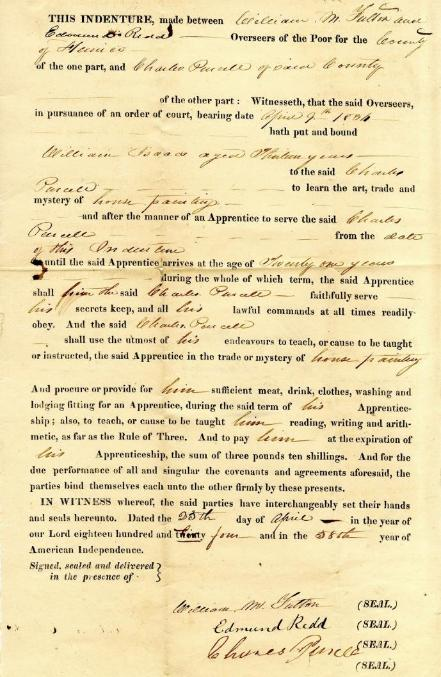 THIS INDENTURE, made between William M. Fulton and
Edmund Redd Overseers of the Poor for the County
of Henrico
of the one part, and Charles Purcell of said County
of the other part: Witnesseth, that the said Overseers,
in pursuance of an order of court, bearing date April 9th 1834
hath put and bound
William Isaacs aged thirteen years
to the said Charles
Purcell to learn the art, trade and
mystery of house painting
and after the manner of an Apprentice to serve the said Charles
Purcell from the date
of this Indenture
until the said Apprentice arrives at the age of Twenty one years
during the whole of which term, the said Apprentice
shall him the said Charles Purcell faithfully serve
his secrets keep, and all his lawful commands at all times readily
obey. And the said Charles Purcell
shall use the utmost of his endeavours to teach, or cause to be taught
or instructed, the said Apprentice in the trade or mystery of house painting
And procure or provide for him sufficient meat, drink, clothes, washing and
lodging fitting for an Apprentice, during the said term of his Apprentice-
ship; also, to teach, or cause to be taught him reading, writing and arith-
metic, as far as the Rule of Three. And to pay him at the expiration of
his Apprenticeship, the sum of three pounds ten shillings. And for the
due performance of all and singular the covenants and agreements aforesaid, the
parties bind themselves each unto the other firmly by these presents.
IN WITNESS whereof, the said parties have interchangeably set their hands
and seals hereunto. Dated the day of April in the year of
our Lord eighteen hundred and thirty four and in the 58th year of
American Independence.
Signed, sealed and delivered }
in the presence of }
William M. Fulton (SEAL.)
Edmund Redd (SEAL.)
Charles Purcell (SEAL.)
(SEAL.)